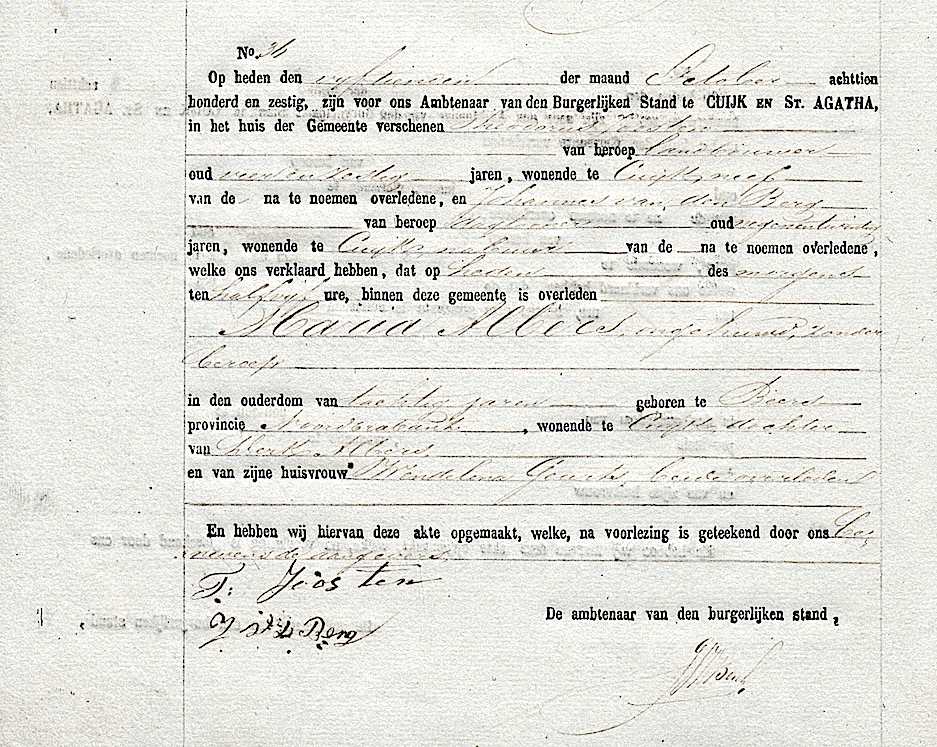 No. 34
Op heden den vijftienden der maand October achttien
honderd en zestig, zijn voor ons Ambtenaar van den Burgerlijken Stand te CUIJK EN ST. AGATHA,
in het huis der Gemeente verschenen Theodorus Joosten
van beroep Landbouwer
oud jaren, wonende te Cuijk, neef
van de na te noemen overledene, en Johannes van den Berg
van beroep oud negenentwintig
jaren, wonende te Cuijk, nabuur van de na te noemen overledene,
welke ons verklaard hebben, dat op heden des morgens
ten half vijf ure, binnen deze gemeente is overleden
Maria Albers, ongehuwd, zonder
beroep
in den ouderdom van tachtig jaren geboren te Beers
provincie Noordbrabant, wonende te Cuijk dochter
van Derk Albers
en van zijne huisvrouw Wendelina beide overleden
En hebben wij hiervan deze akte opgemaakt, welke, na voorlezing is geteekend door ons be-
nevens de aangevers
T: Joosten
J v d Berg
De ambtenaar van den burgerlijken stand,